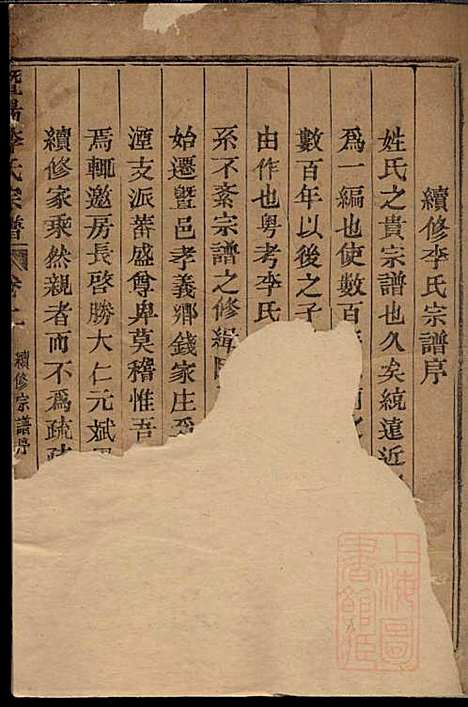 續修李氏宗譜序
姓氏之貴宗譜也久矣統遠近
爲一編也使數百
數百年以後之子
由作也粤考李氏
系不紊宗譜之修緝
始遷暨邑孝義鄉錢家庄爲
湮支派蕃盛尊卑莫稽惟吾
焉輒邀房長啓勝大仁元斌
續修家乘然親者而不爲疏
暨陽李氏宗譜
卷之一
續修宗譜序
上海圖書館藏